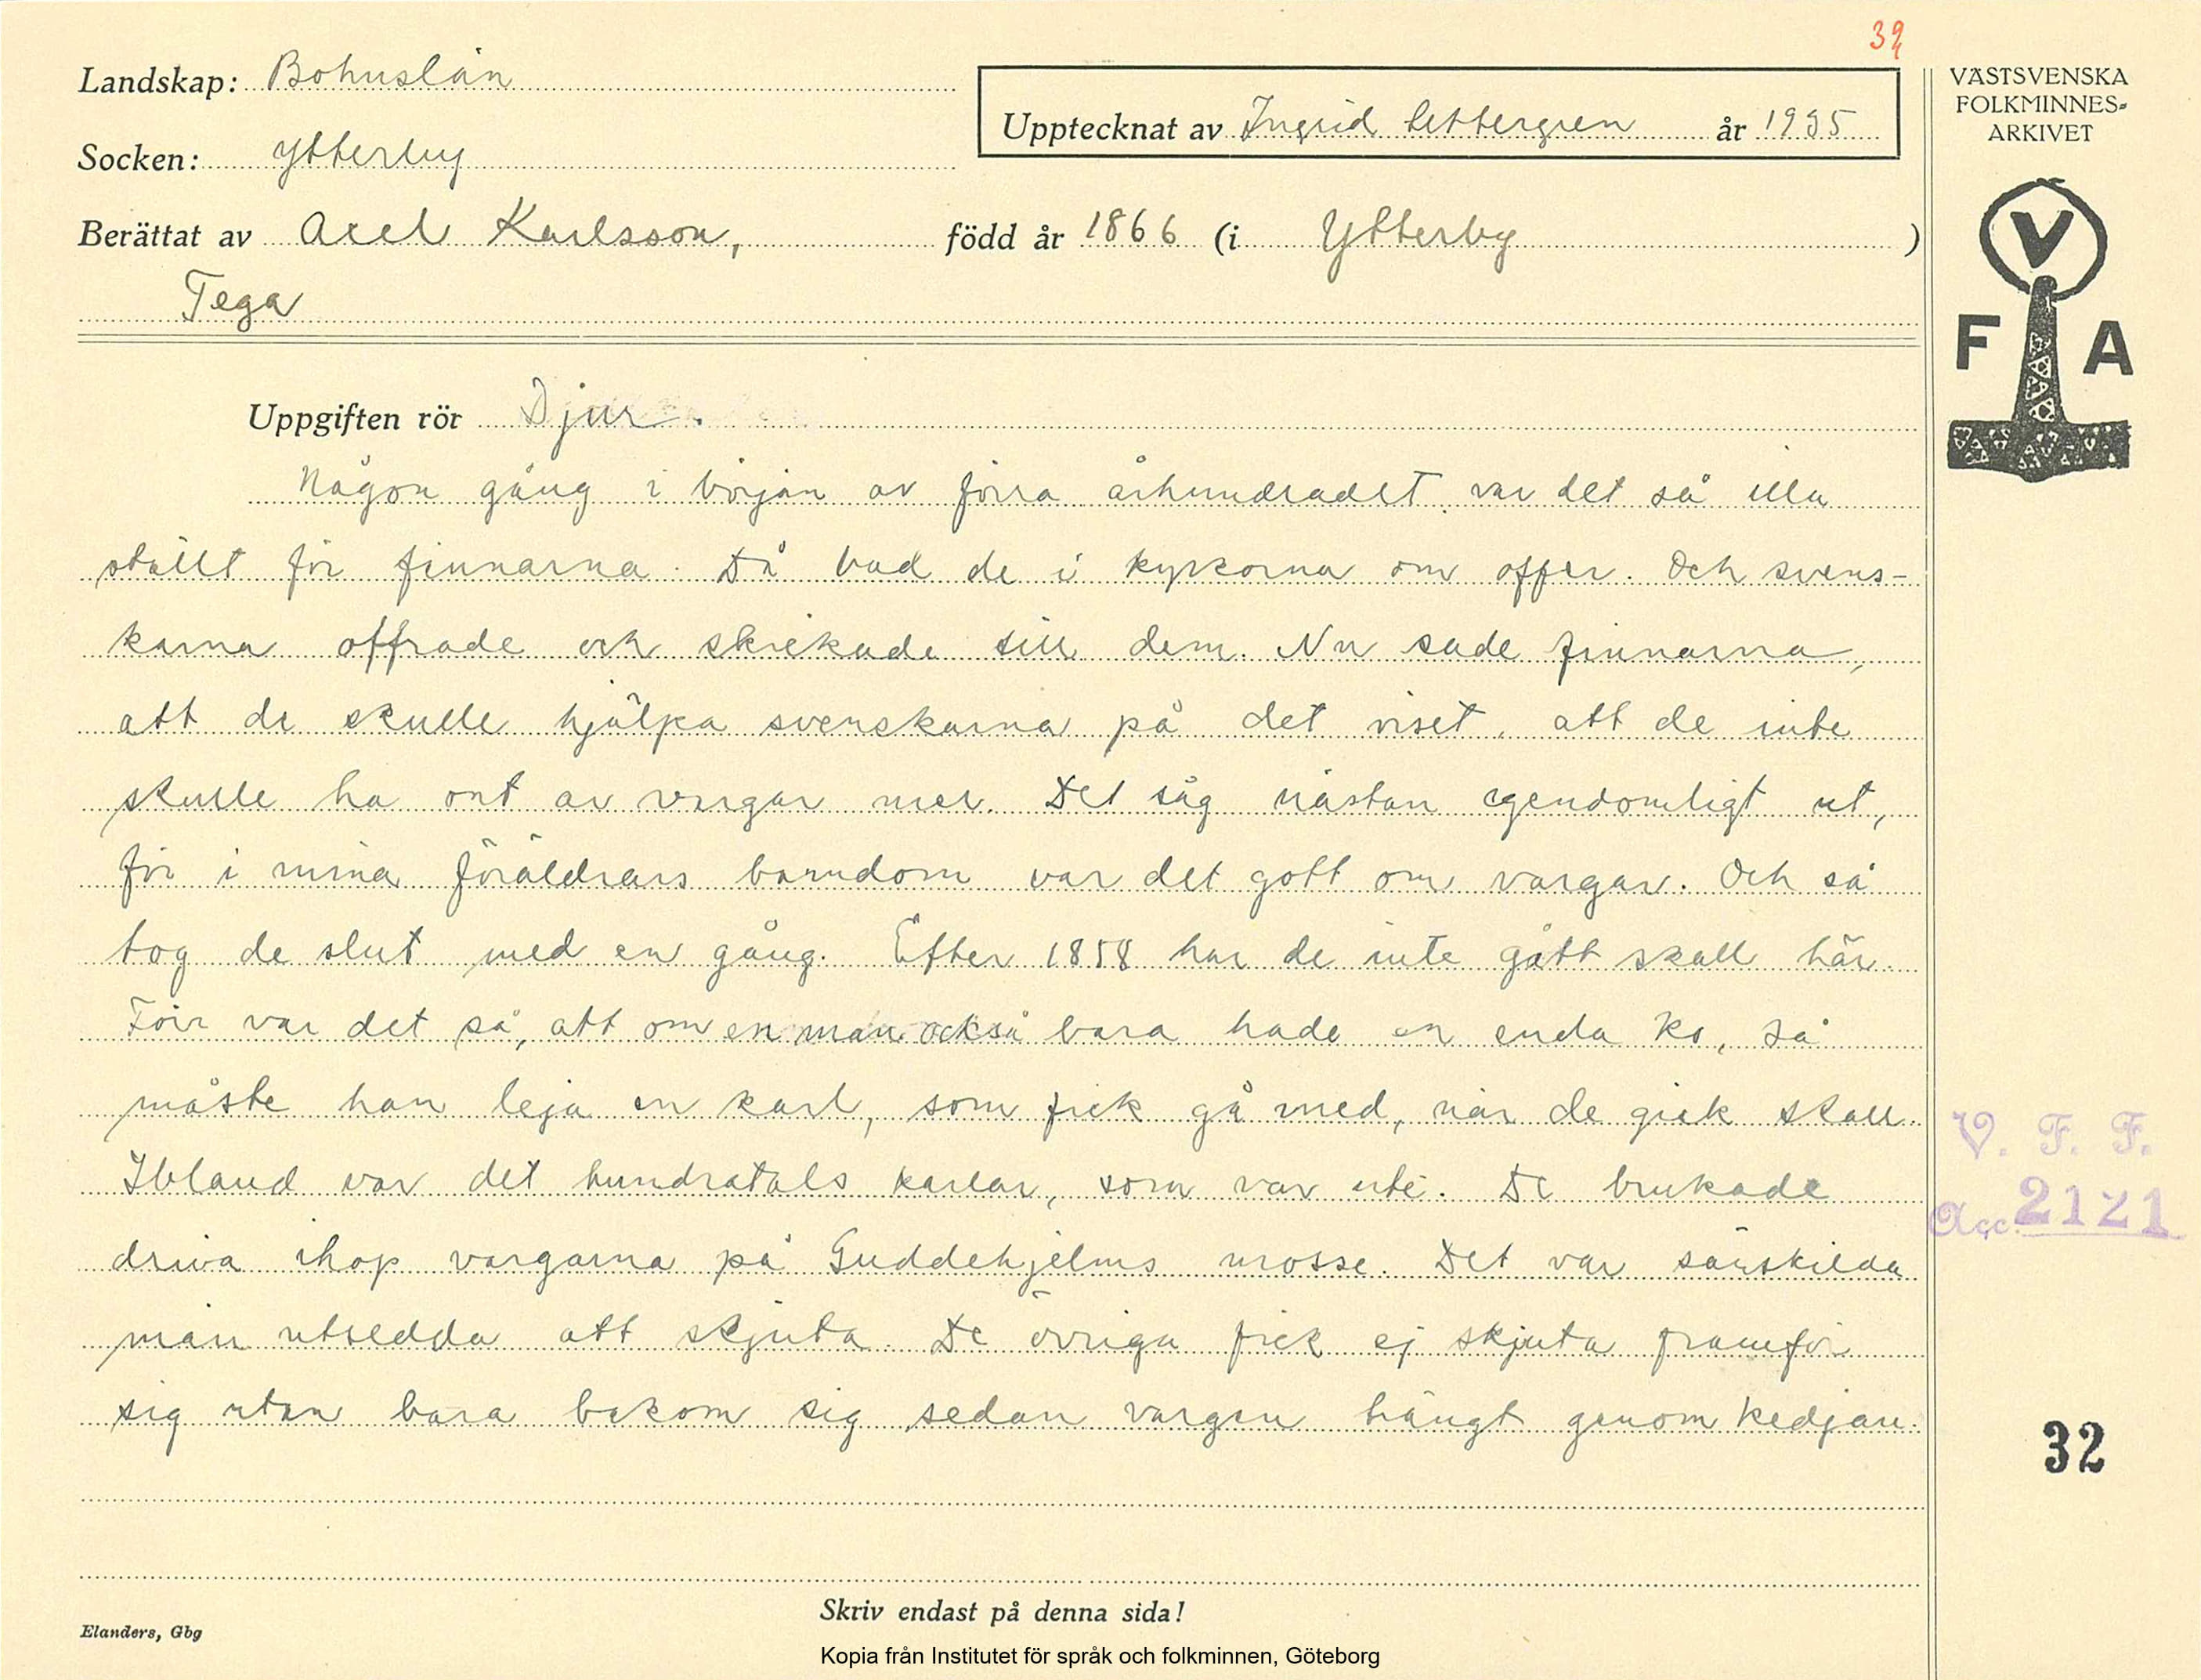 39
Landskap: Bohuslän
Upptecknat av Ingrid Settergren år 1935
Socken: Ytterby
Berättat av Axel Karlsson, född år 1866 (i Ytterby )
Tega
VÄSTSVENSKA
FOLKMINNES-
ARKIVET
V
F A
Uppgiften rör Djur.
Någon gång i början av förra århundradet var det så illa
ställt för finnarna. Då bad de i kyrkorna om offer. Och svens-
karna offrade och skickade till dem. Nu sade finnarna,
att de skulle hjälpa svenskarna på det viset, att de inte
skulle ha ont av vargar mer. Det såg nästan egendomligt ut,
för i mina föräldrars barndom var det gott om vargar. Och så
tog de slut med en gång. Efter 1858 har de inte gått skall här.
Förr var det så, att om en man också bara hade en enda ko, så
måste han leja en karl, som fick gå med, när de gick skall.
Ibland var det hundratals karlar, som var ute. De brukade
driva ihop vargarna på Guddehjelms mosse. Det var särskilda
män utsedda att skjuta. De övriga fick ej skjuta framför
sig utan bara bakom sig sedan vargen hängt genom kedjan.
V. F. F.
Acc. 2121
32
Skriv endast på denna sida!
Elanders, Gbg
Kopia från Institutet för språk och folkminnen, Göteborg